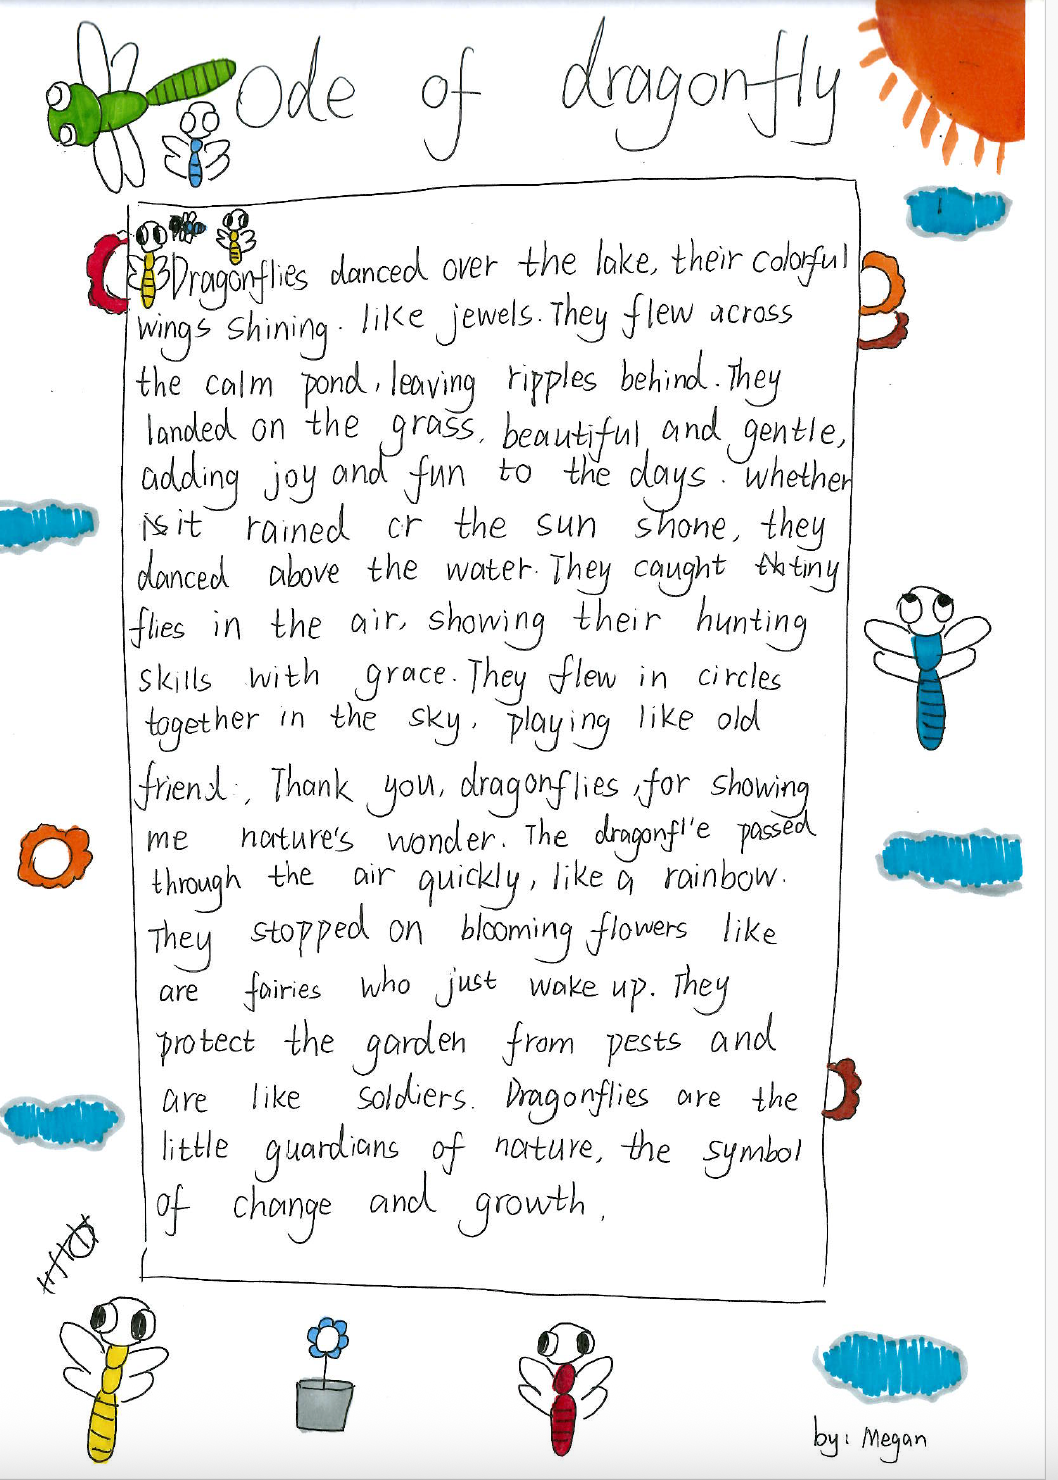 Ode of dragonfly
Dragonflies danced over the lake, their colorful
wings shining. like jewels. They flew across
the calm pond, leaving ripples behind. They
landed on the grass, beautiful and gentle,
adding joy and fun to the days. Whether
is it rained or the sun shone, they
danced above the water. They caught tiny
flies in the air, showing their hunting
skills with grace. They flew in circles
together in the sky, playing like old
friend, Thank you, dragonflies, for showing
me nature's wonder. The dragonfl'e passed
through the air quickly, like a rainbow.
They stopped on blooming flowers like
are fairies who just wake up. They
protect the garden from pests and
are like soldiers. Dragonflies are the
little guardians of nature, the symbol
of change and growth.
by: Megan